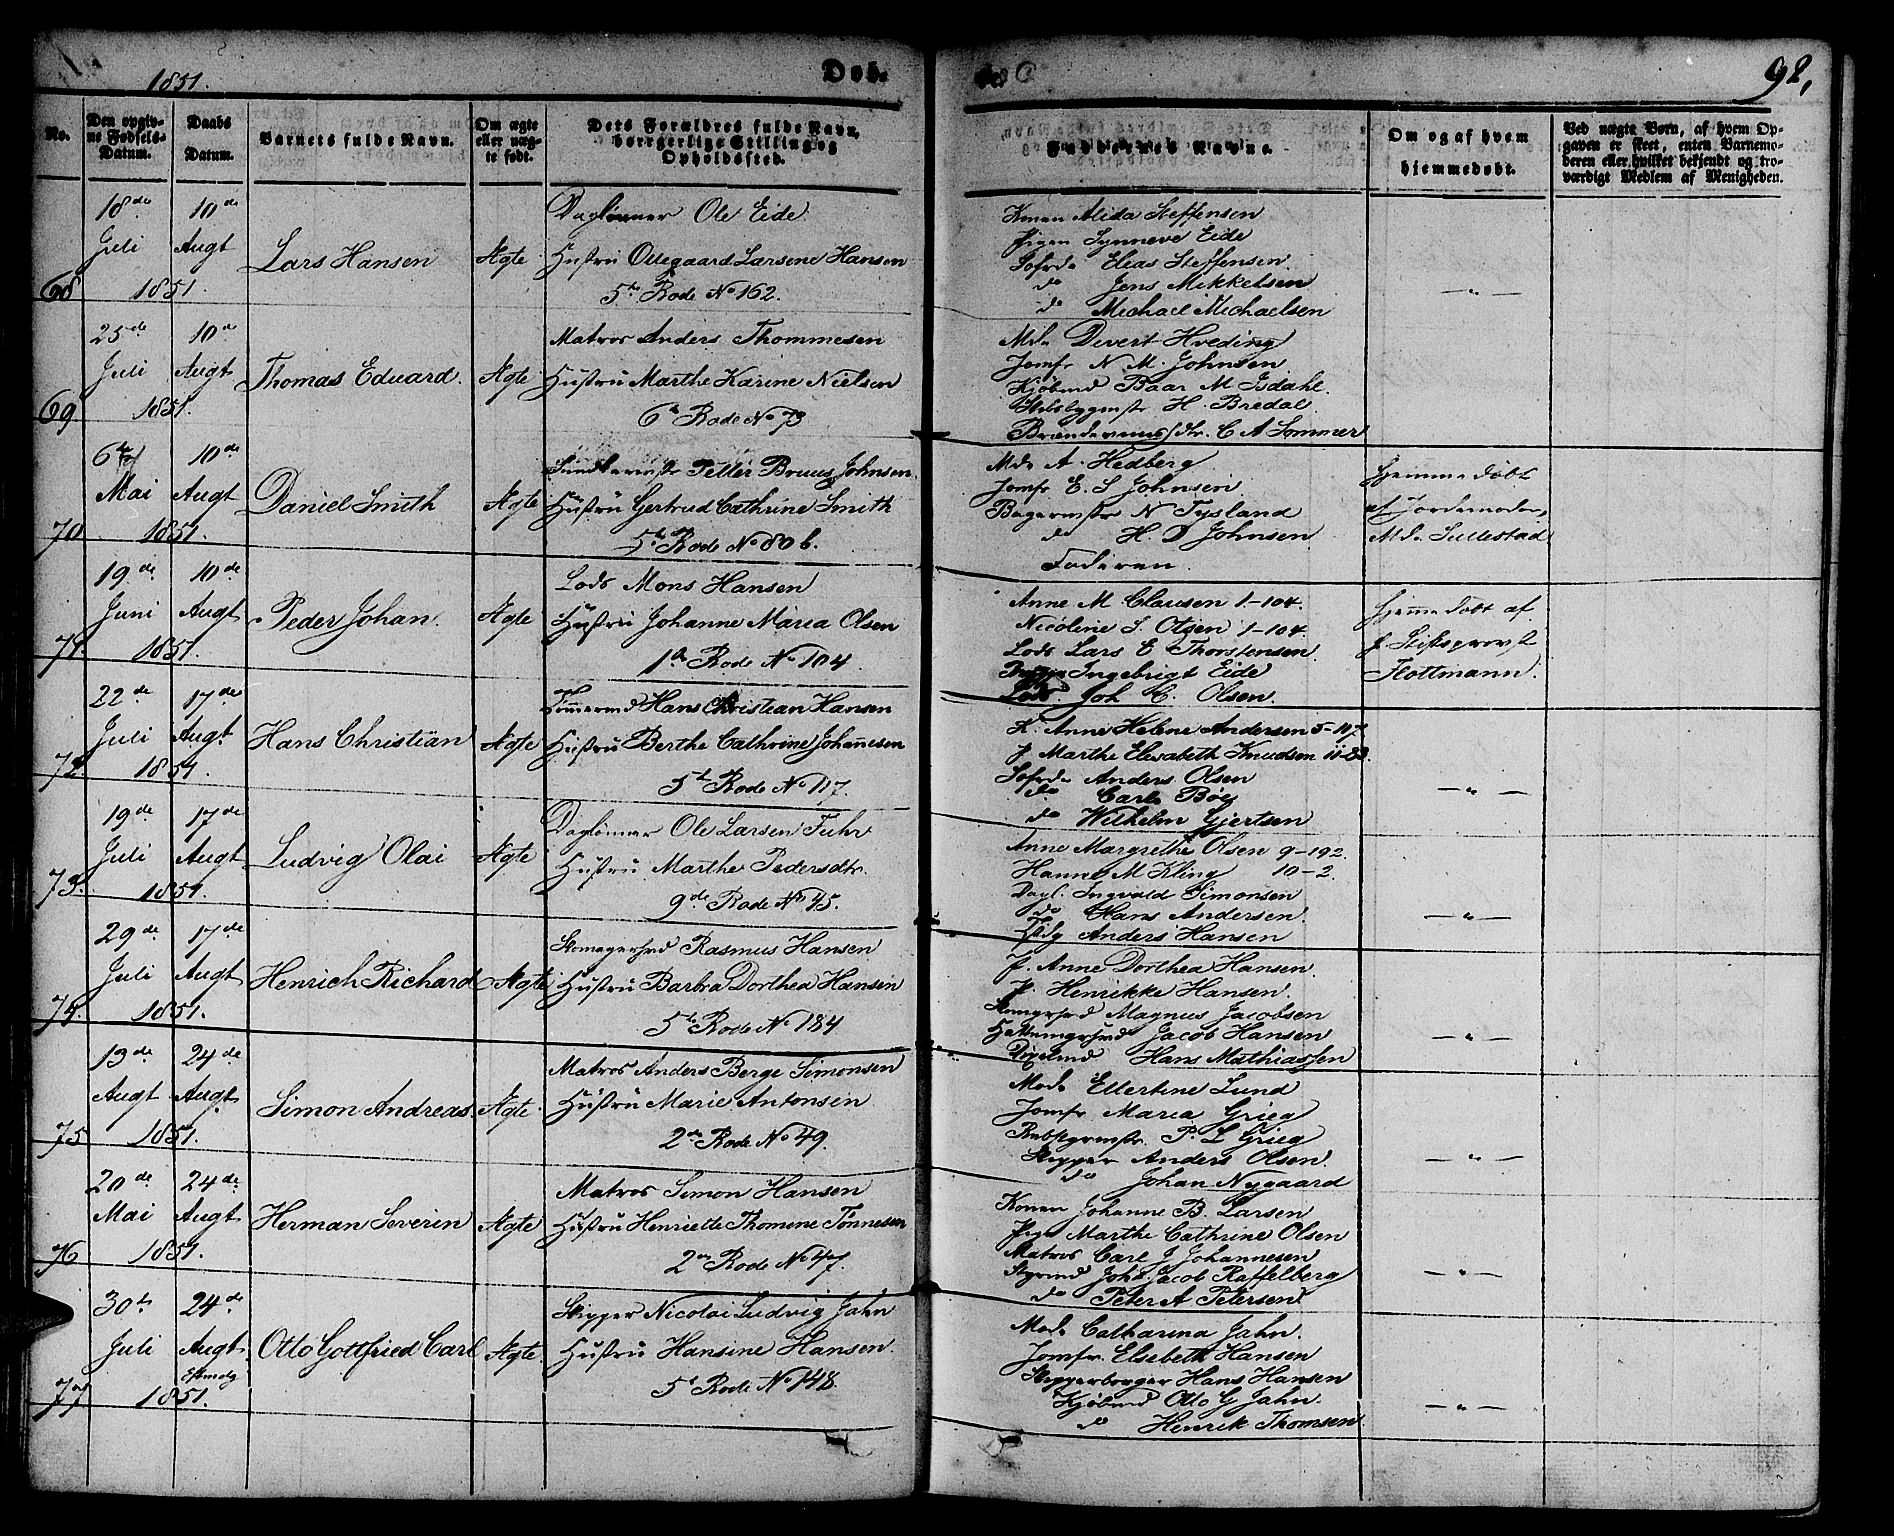 1851.
Døb-
te
92,
No.
Den opgiv-
ne Fødsels-
Datum.
Daabs
Datum.
Barnets fulde Navn.
Om ægte
eller uæg-
te født.
Dets Forældres fulde Navn,
borgerlige Stilling og
Opholdssted.
Faddernes Navne.
Om og af hvem
hjemmedøbt.
Ved uægte Børn, af hvem Op-
gaven er skeet, enten Barnemo-
deren eller hvilket bekjendt og tro-
værdigt Medlem af Menigheden.
68
18de Juli 1851.
10de Augt
Lars Hansen
Ægte
Daglønner Ole Eide
Hustru Ollegaard Larsene Hansen
5te Rode No 162.
Konen Alida Steffensen
Pigen Synneve Eide
Sofrde Elias Steffensen
do Jens Mikkelsen
do Michael Michaelsen
— " —
69
25de Juli 1851.
10de Augt
Thomas Eduard.
Ægte
Matros Anders Thommesen
Hustru Marthe Karine Nielsen
6te Rode No 73
Mde Devert Hveding
Jomfr N M. Johnsen
Kjøbmd Baar M Isdahl
Skibsbygmstr H. Bredal
C A Sommer
70
6te Mai 1851.
10de Augt
Daniel Smith
Ægte
Petter Bruus Johnsen
Hustru Gertrud Cathrine Smith
5te Rode No 80 b.
Mde A. Hedberg
Jomfr E. S Johnsen
Bagermstr N Tysland
do H. D Johnsen
Faderen.
Hjemmedøbt
af Jordemoder,
Mde Sullestad
71
19de Juni 1851.
10de Augt
Peder Johan.
Ægte
Lods Mons Hansen
Hustru Johanne Maria Olsen
1te Rode No 104
Anne M. Clausen 1-104.
Nicoline S. Olsen 1-104.
Lods Lars E Thorstensen
Ingebrigt Eide
Lods. Joh C. Olsen.
Hjemmedøbt af
H. Stiftsprovst
Flottmann.
72
22de Juli 1851.
17de Augt.
Hans Christian
Ægte
Tømmermd Hans Christian Hansen
Hustru Berthe Cathrine Johannesen
5te Rode No 117.
K. Anne Helene Andersen 5-117.
J Marthe Elisabeth Knudsen 11-83.
Sofrde Anders Olsen
do Carl Bøe
do Wilhelm Gjertsen
— " —
73.
19de Juli 1851.
17de Augt
Ludvig Olai
Ægte
Daglønner Ole Larsen Fuhr
Hustru Marthe Pedersdtr.
9de Rode No 45.
Anne Margrethe Olsen 9-192.
Hanne M Kling 10-2.
Dagl. Ingvald Simonsen
do Hans Andersen.
Anders Hansen
— " —
74.
29de Juli 1851.
17de Augt
Henrich Richard
Ægte
Skomagersvd Rasmus Hansen
Hustru Barbra Dorthea Hansen
5te Rode No 184
J. Anne Dorthea Hansen.
P. Henrikke Hansen.
Skomgrsvd Magnus Jacobsen
Jacob Hansen
Hans Mathiassen
— " —
75
13de Augt 1851.
24de Augt
Simon Andreas.
Ægte.
Matros Anders Berge Simonsen
Hustru Marie Antonsen
2den Rode No 49.
Mad. Ellertine Lund
Jomfr Maria Grieg
Rebslgrmstr. P. L Grieg
Skipper Anders Olsen.
do Johan Nygaard
— " —
76
20de Mai 1851.
24de Augt
Herman Severin
Ægte
Matros Simon Hansen
Hustru Henriette Thomine Tønnesen
2den Rode No 47.
Konen Johanne B. Larsen
Pige Marthe Cathrine Olsen
Matros Carl J Johannesen
Styrmd Joh. Jacob Raffelberg
do Peter A Petersen
— " —
77
30te Juli 1851.
24de Augt. Eftmdg
Otto Gottfried Carl
Ægte.
Skipper Nicolai Ludvig Jahn
Hustru Hansine Hansen.
5te Rode No 148.
Mad. Catharina Jahn.
Jomfr. Elsebeth Hansen
Skipperborger Hans Hansen
Kjøbmd Otto G Jahn.
do Henrik Thomsen
— " —